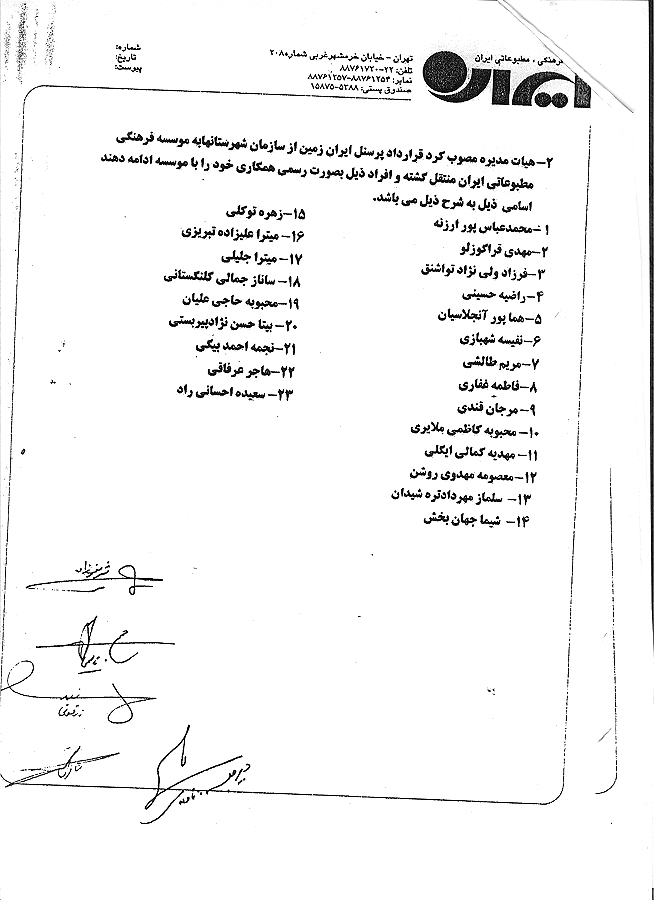 فرهنگی ، مطبوعاتی ایران
ایران
تهران - خیابان خرمشهرغربی شماره ۲۰۸
تلفن: ۲۲-۸۸۷۶۱۷۲۰
نمابر: ۸۸۷۶۱۲۵۴-۸۸۷۶۱۲۵۷
صندوق پستی: ۵۳۸۸-۱۵۸۷۵
شماره:
تاریخ:
پیوست:
۲-هیات مدیره مصوب کرد قرارداد پرسنل ایران زمین از سازمان شهرستانهابه موسسه فرهنگی
مطبوعاتی ایران منتقل گشته و افراد ذیل بصورت رسمی همکاری خود را با موسسه ادامه دهند
اسامی ذیل به شرح ذیل می باشد.
۱-محمدعباس پور ارزنه
۲-مهدی قراگوزلو
۳-فرزاد ولی نژاد تواشنق
۴-راضیه حسینی
۵-هما پور آنجلاسیان
۶-نفیسه شهبازی
۷-مریم طالشی
۸-فاطمه غفاری
۹-مرجان قندی
۱۰-محبوبه کاظمی ملایری
۱۱-مهدیه کمالی ایگلی
۱۲-معصومه مهدوی روشن
۱۳-سلماز مهردادتره شیدان
۱۴-شیما جهان بخش
۱۵-زهره توکلی
۱۶-میترا علیزاده تبریزی
۱۷-میترا جلیلی
۱۸-ساناز جمالی گلنگستانی
۱۹-محبوبه حاجی علیان
۲۰-بیتا حسن نژادپیربستی
۲۱-نجمه احمد بیگی
۲۲-هاجر عرفاقی
۲۳-سعیده احسانی راد